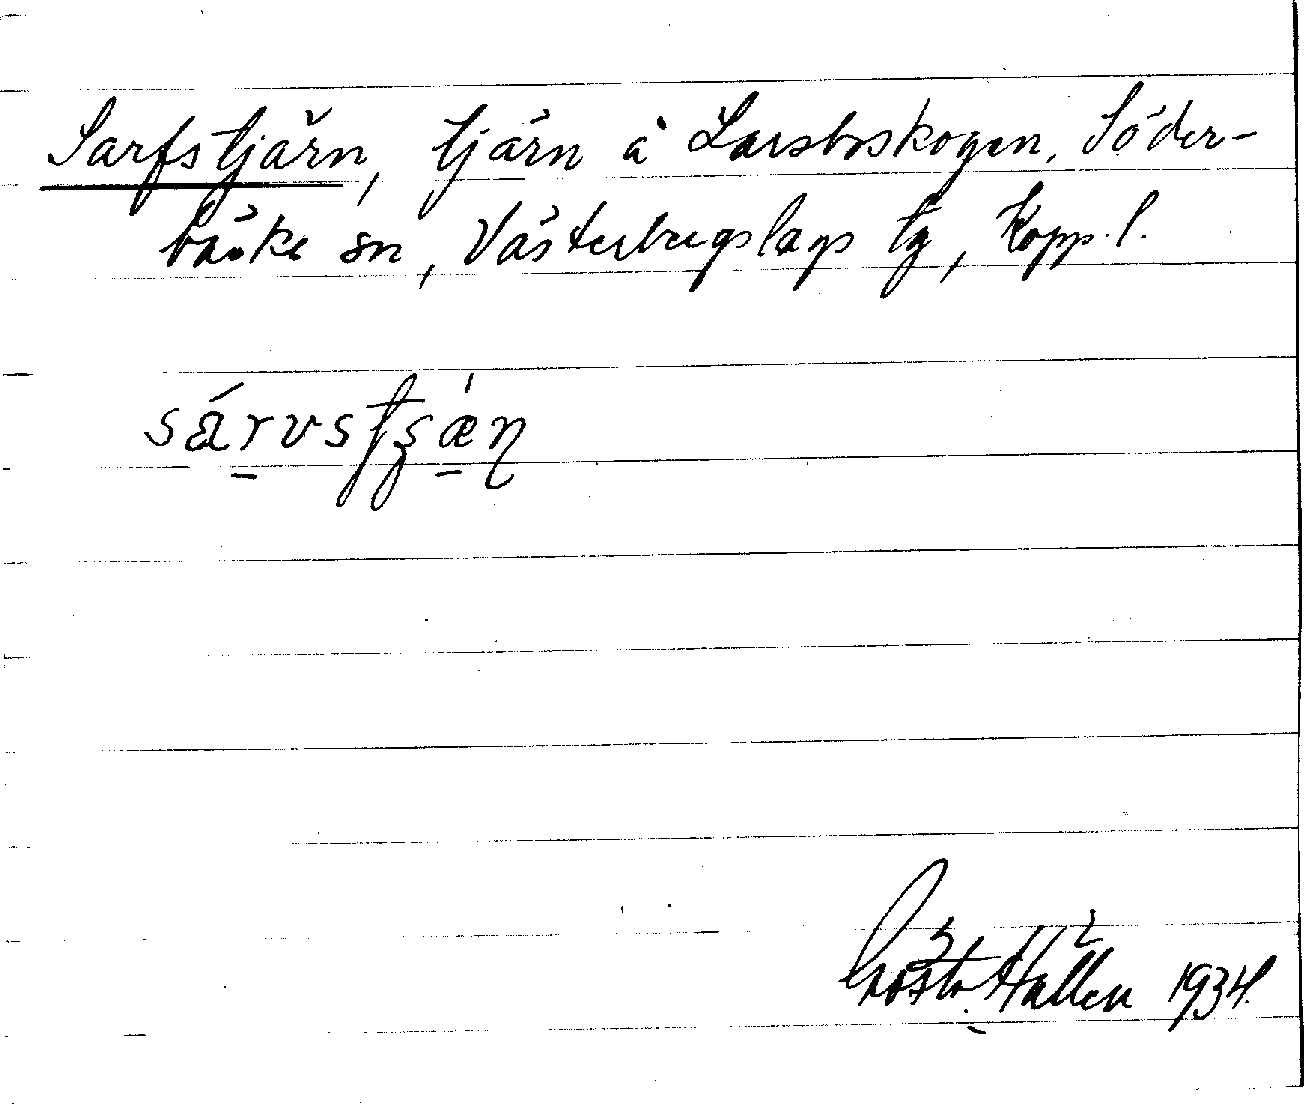 Sarfstjärn, tjärn å Larsboskogen, Söder-
bärke sn, Västerbergslags tg, Kopp. l.
sárvstʂǽn̥
Gösta Hallén 1934.